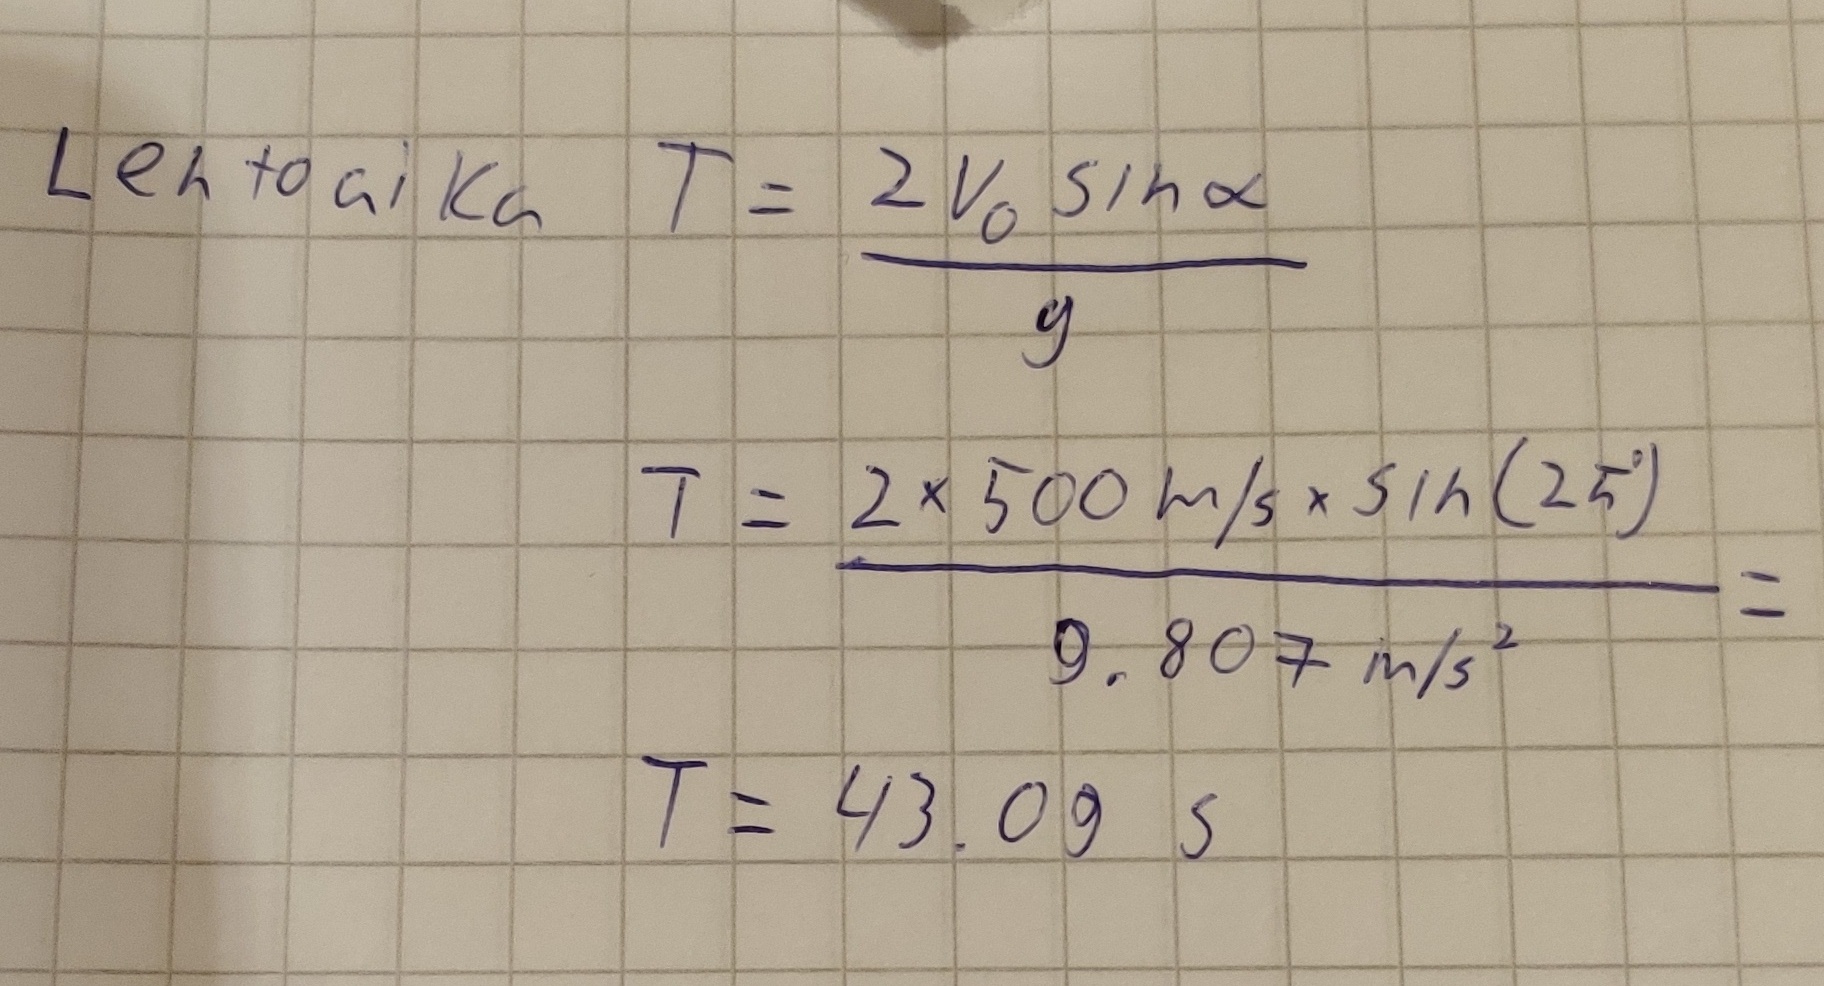 Lentoaika T = 2V₀ sinα / g
T = 2 × 500 m/s × sin(25°) / 9.807 m/s² =
T = 43.09 s